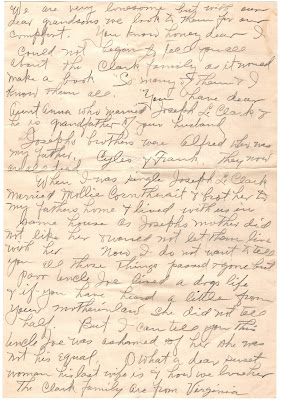 We are very lonesome but with our
dear grandsons we look to them for our
compfort. You know honey dear I
could not began to tell you all
about the Clark family as it would
make a book So many of them & I
know them all. You have dear
Aunt Anna who married Joseph L. Clark
he is grandfather of your husband
Josephs brothers was Alfred he was
my father, & Frank. they now
When I was single Joseph L Clark
married Mollie & brot her to
my fathers home & lived with us in
same house as Josephs mother did
not like her & would not let them live
with her Now I do not want to tell
you all those things passed & gone but
poor uncle Joe lived a dogs life
& if you have heard a little from
your mother in law she did not tell
half. But I can tell you this
uncle Joe was ashamed of her she was
not his equal. O What a dear sweet
woman his last wife is & how we love her
the Clark family are from Virginia